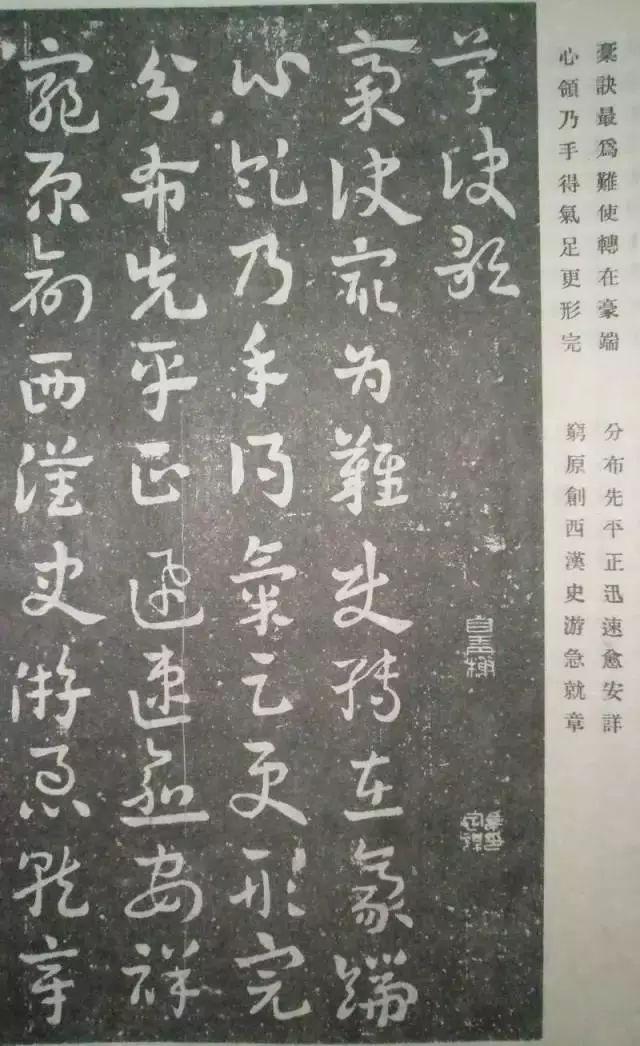 稾訣最爲難使轉在豪端
心領乃手得氣足更形完
分布先平正迅速愈安詳
窮原創西漢史游急就章
草訣歌
稾訣最為難使轉在豪端
心領乃手得氣足更形完
分布先平正迅速愈安祥
窮原創西漢史游急就章